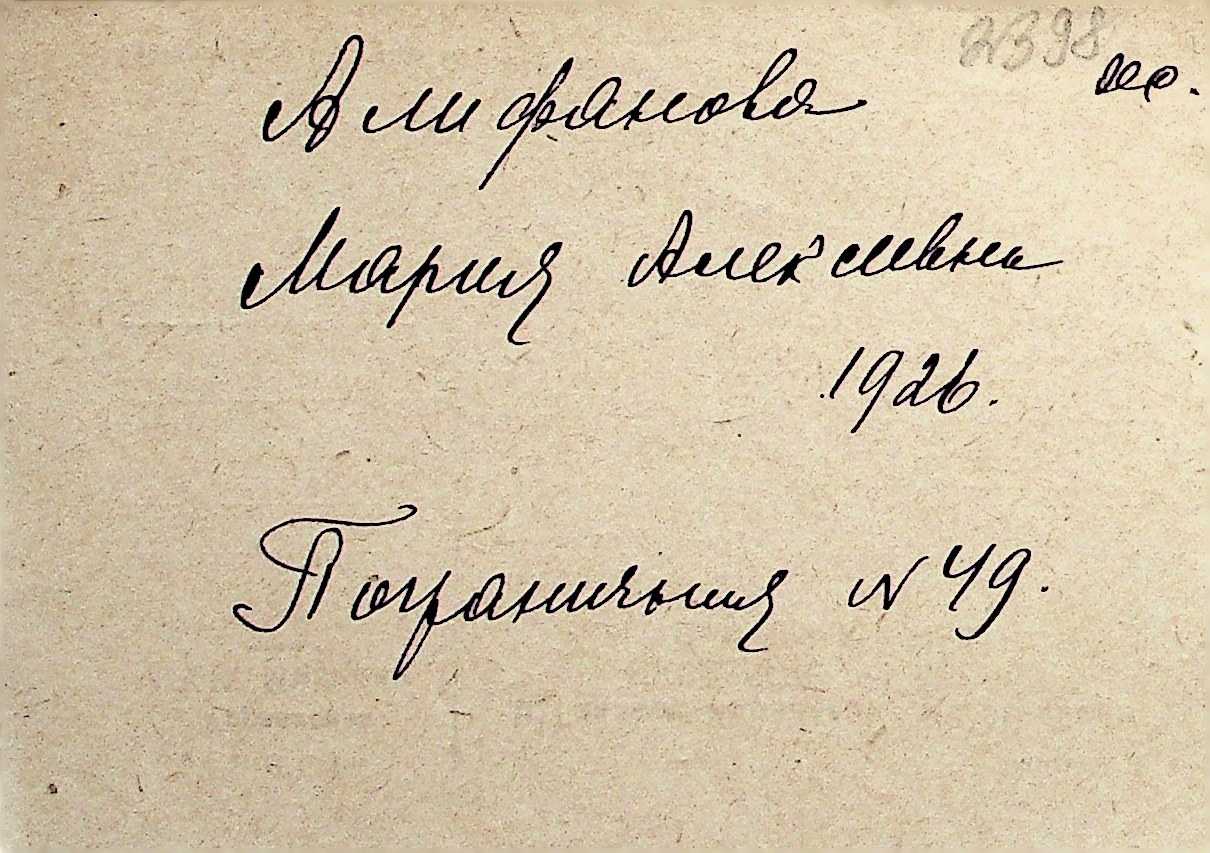 2398
Алифанова
Мария Алексеевна
1926.
Пограничная N 49.